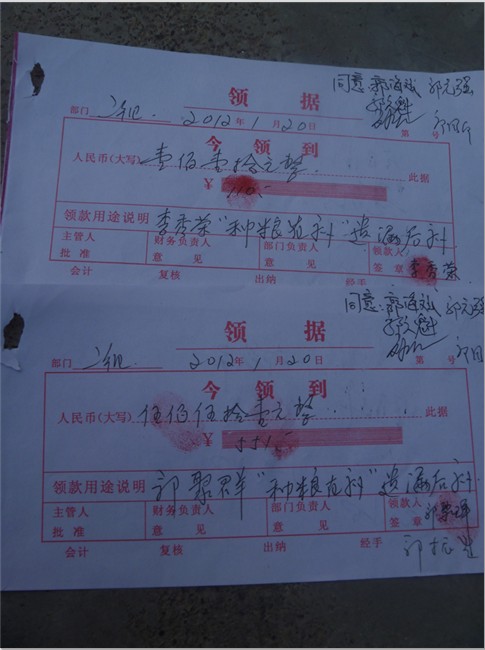 同意 郭海斌 郭元强
领据
部门 二组 2012年1月20日 第 号
今领到
人民币(大写)壹佰壹拾元整 此据
¥ 110.-
领款用途说明 李秀荣"种粮直补"遗漏后补
主管人 财务负责人 部门负责人 领款人
批准 意见 意见 签章 李秀荣
会计 复核 出纳 经手
同意 郭海斌 郭元强
领据
部门 二组 2012年1月20日 第 号
今领到
人民币(大写)伍佰伍拾壹元整 此据
¥ 551.-
领款用途说明 郭聚祥"种粮直补"遗漏后补
主管人 财务负责人 部门负责人 领款人
批准 意见 意见 签章 郭聚祥
会计 复核 出纳 经手